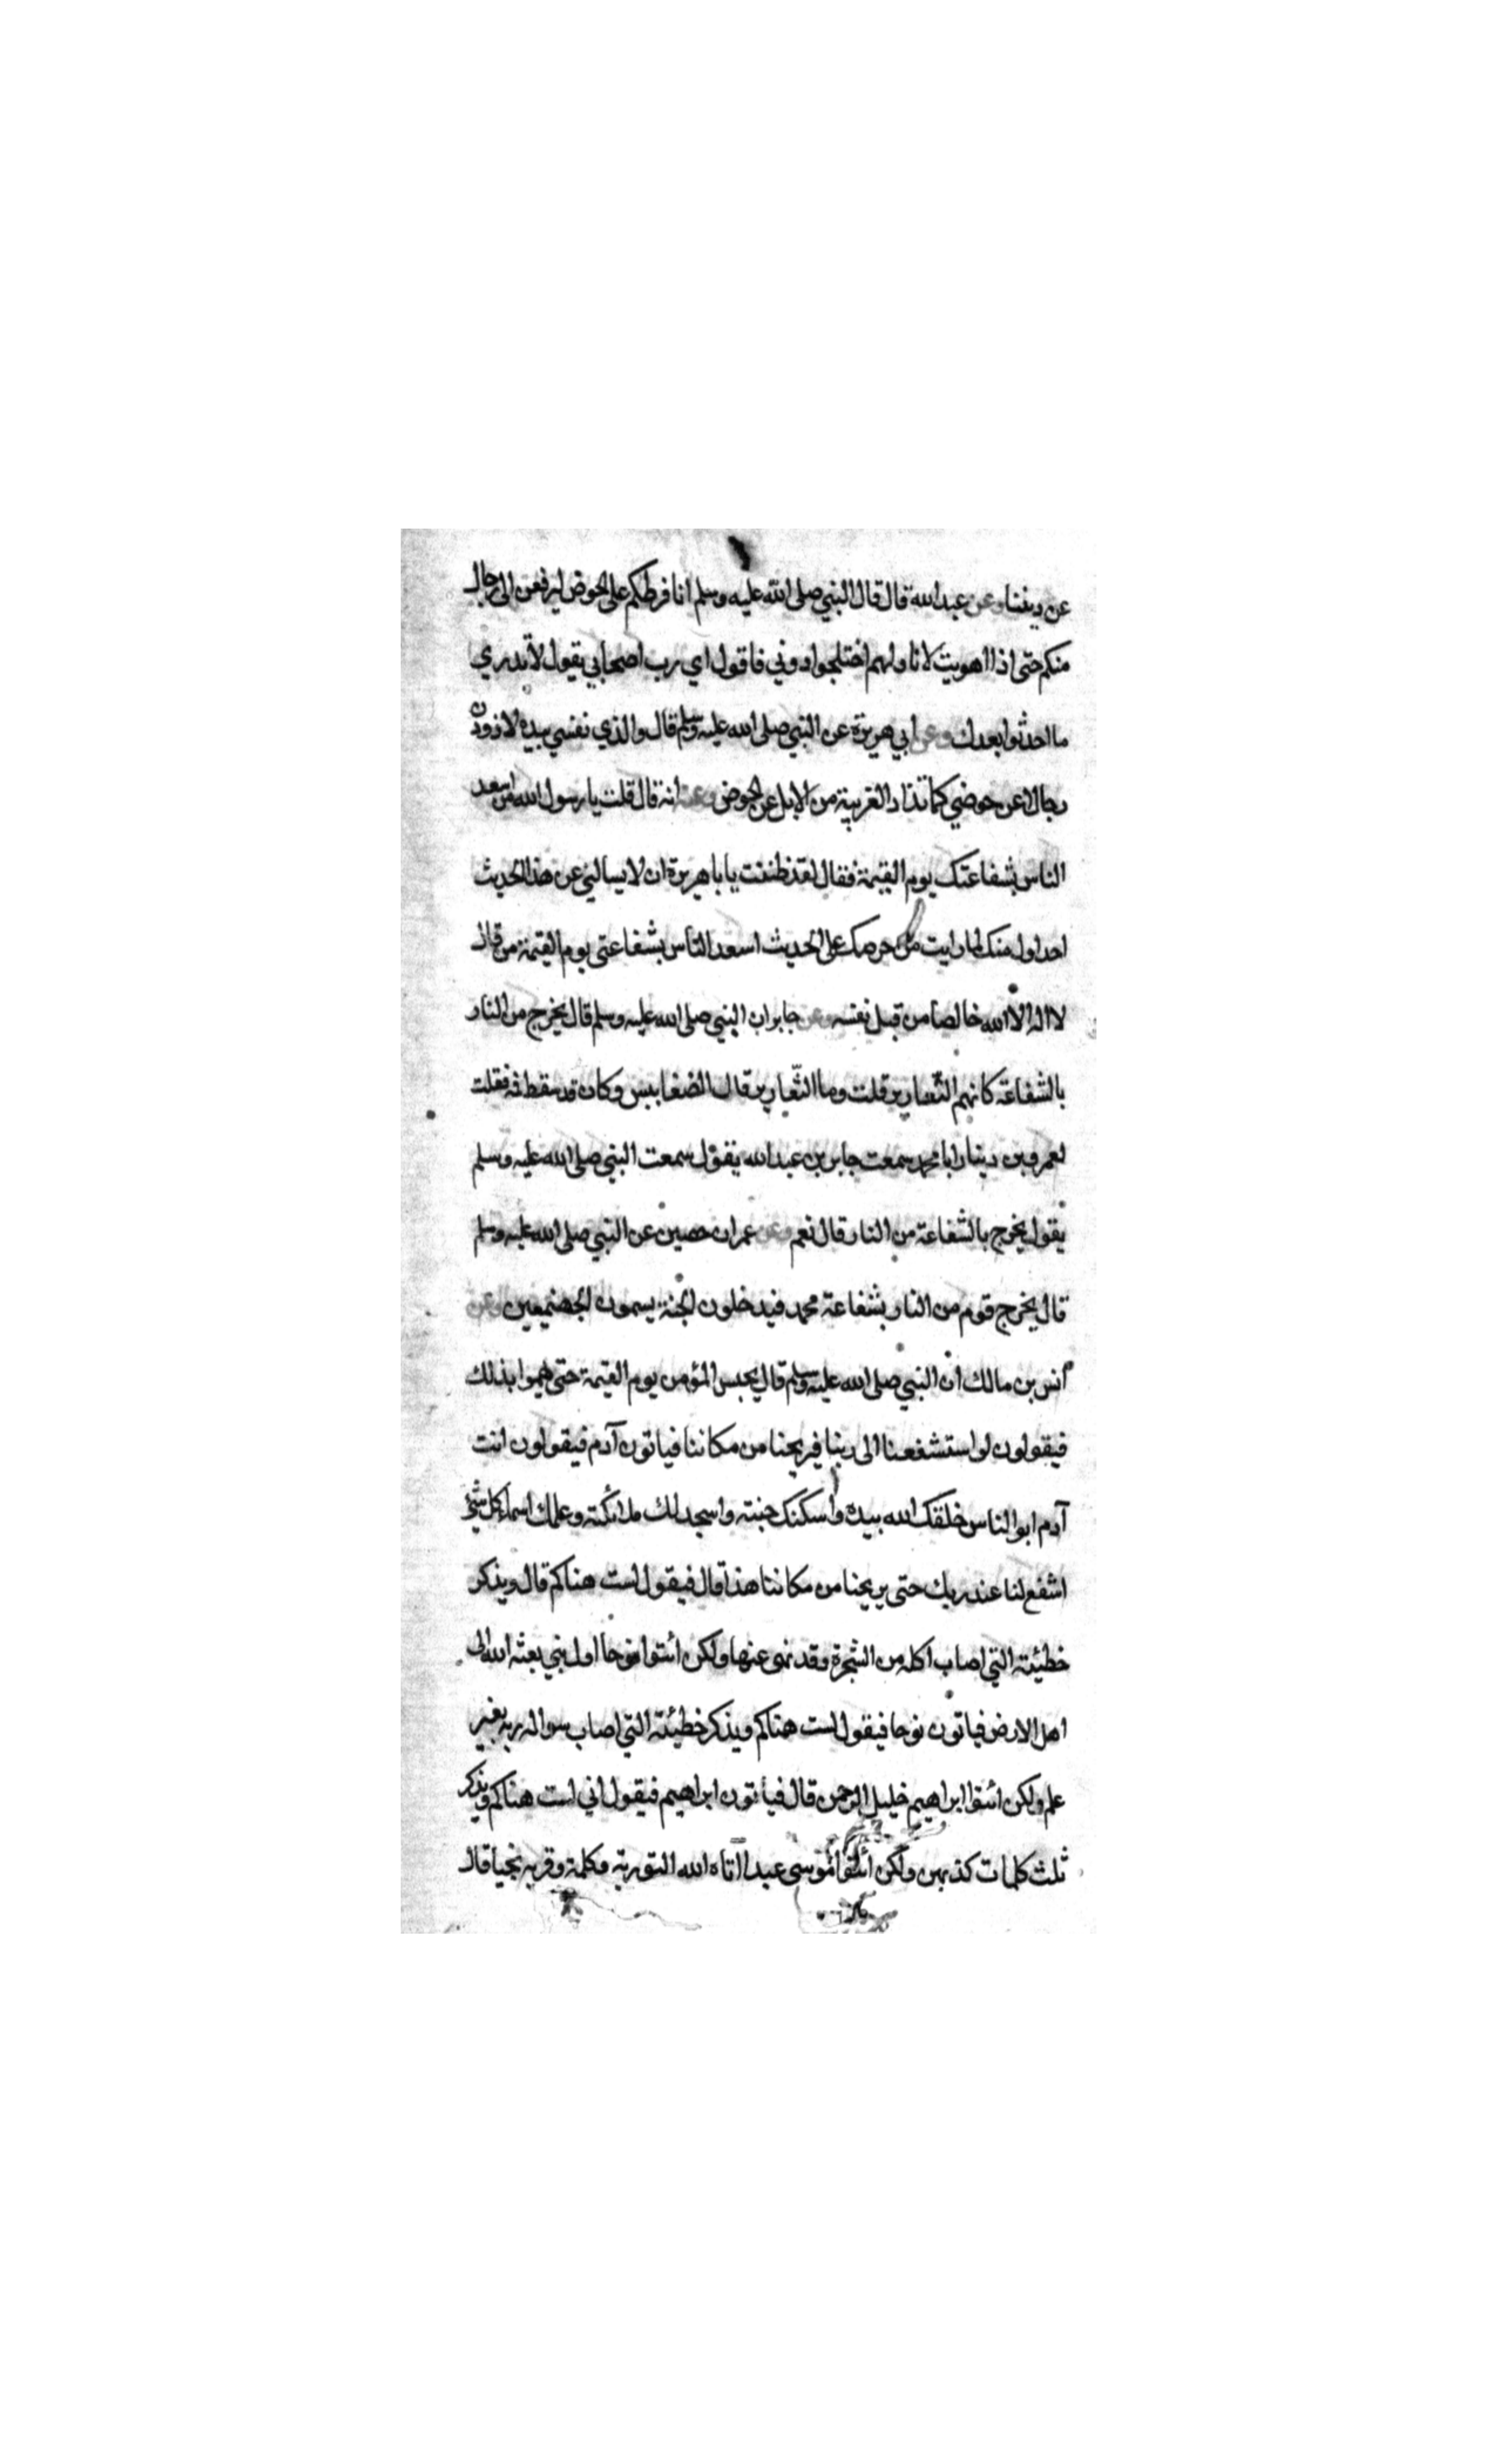 عن ديننا وعن عبد الله قال قال النبي صلى الله عليه وسلم انا فرطكم على الحوض ليرفعن الى رجال
منكم حتى اذا اهويت لاناولهم اختلجوا دوني فاقول اي رب اصحابي يقول لا تدري
ما احدثوا بعدك وعن ابي هريرة عن النبي صلى الله عليه وسلم قال والذي نفسي بيده لاذودن
رجالا عن حوضي كما تذاد الغريبة من الابل عن الحوض وعنه انه قال قلت يا رسول الله من اسعد
الناس بشفاعتك يوم القيمة فقال لقد ظننت يا با هريرة ان لا يسالني عن هذا الحديث
احد اول منك لما رايت من حرصك على الحديث اسعد الناس بشفاعتي يوم القيمة من قال
لا اله الا الله خالصا من قبل نفسه وعن جابر ان النبي صلى الله عليه وسلم قال يخرج من النار
بالشفاعة كانهم الثعارير قلت وما الثعارير قال الضغابيس وكان قد سقط فه فقلت
لعمرو بن دينار ابا محمد سمعت جابر بن عبد الله يقول سمعت النبي صلى الله عليه وسلم
يقول يخرج بالشفاعة من النار قال نعم وعن عمران حصين عن النبي صلى الله عليه وسلم
قال يخرج قوم من النار بشفاعة محمد فيدخلون الجنة يسمون الجهنميين وعن
انس بن مالك ان النبي صلى الله عليه وسلم قال يحبس المؤمن يوم القيمة حتى يهموا بذلك
فيقولون لو استشفعنا الى ربنا فيريحنا من مكاننا فياتون آدم فيقولون انت
آدم ابو الناس خلقك الله بيده واسكنك جنته واسجد لك ملائكته وعلمك اسماء كل شئ
اشفع لنا عند ربك حتى يريحنا من مكاننا هذا قال فيقول لست هناكم قال ويذكر
خطيئته التي اصاب اكله من الشجرة وقد نهى عنها ولكن ائتوا نوحا اول نبي بعثه الله الى
اهل الارض فياتون نوحا فيقول لست هناكم ويذكر خطيئته التي اصاب سواله ربه بغير
علم ولكن ائتوا ابراهيم خليل الرحمن قال فياتون ابراهيم فيقول اني لست هناكم ويذكر
ثلث كلمات كذبهن ولكن ائتوا موسى عبدا آتاه الله التورية وكلمه وقربه نجيا قال